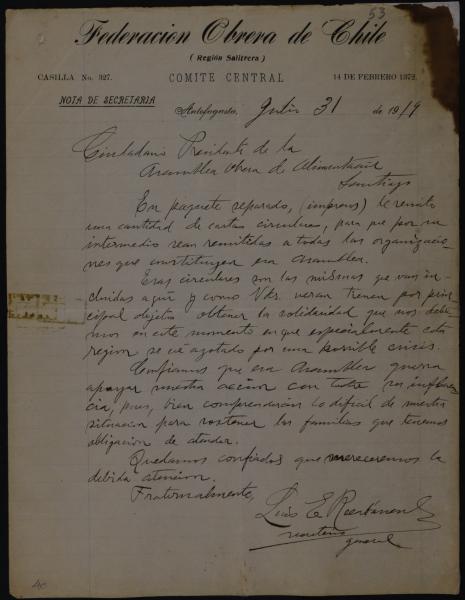 53
Federacion Obrera de Chile
( Región Salitrera )
CASILLA No. 327.
COMITE CENTRAL
14 DE FEBRERO 1372.
NOTA DE SECRETARIA
Antofagasta, Julio 31 de 1919
Ciudadano Presidente de la
Asamblea Obrera de Alimentación
Santiago
En paquete separado, (impreso) le remito
una cantidad de cartas circulares, para que por su
intermedio sean remitidas a todas las organizacio-
nes que constituyen esa Asamblea.
Esas circulares son las mismas que van in-
cluidas aquí y como Uds. veran tienen por prin-
cipal objeto obtener la solidaridad que nos debe-
mos en este momento en que especialmente esta
region se vé azotada por una horrible crisis.
Confiamos que esa Asamblea querra
apoyar nuestra accion con toda su influen-
cia, pues, bien comprenderán lo dificil de nuestra
situacion para sostener las familias que tenemos
obligacion de atender.
Quedamos confiados que mereceremos la
debida atencion.
Fraternalmente,
Luis E. Recabarren S.
secretario
general
40